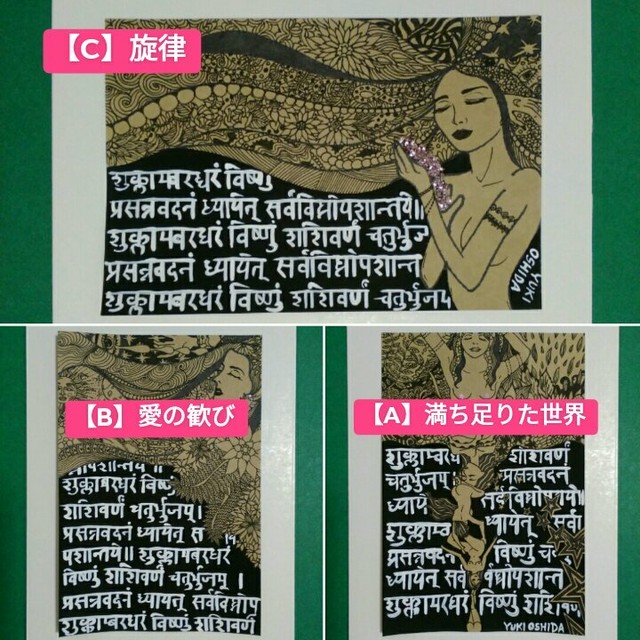 【C】旋律
शुक्लाम्बरधरं विष्णुं
प्रसन्नवदनं ध्यायेत् सर्वविघ्नोपशान्तये॥
शुक्लाम्बरधरं विष्णुं शशिवर्णं चतुर्भुज
प्रसन्नवदनं ध्यायेत् सर्वविघ्नोपशान्त
शुक्लाम्बरधरं विष्णुं शशिवर्णं चतुर्भुजम्
YUKI
OSHIDA
【B】愛の歓び
शुक्लाम्बरधरं विष्णुं
शशिवर्णं चतुर्भुजम्।
प्रसन्नवदनं ध्यायेत् स
पशान्तये॥ शुक्लाम्बरधरं
विष्णुं शशिवर्णं चतुर्भुजम् ।
प्रसन्नवदनं ध्यायेत् सर्वविघ्नोप
शुक्लाम्बरधरं विष्णुं शशिवर्णं
【A】満ち足りた世界
शुक्लाम्बरध शशिवर्णं
चतुर्भुज प्रसन्नवदनं
ध्याये
ध्यायेत् सर्वा
शुक्लाम्बर
प्रसन्नवदनं विष्णुं
ध्यायेत् सर्व
शुक्लाम्बरधरं विष्णुं शशि
YUKI OSHIDA